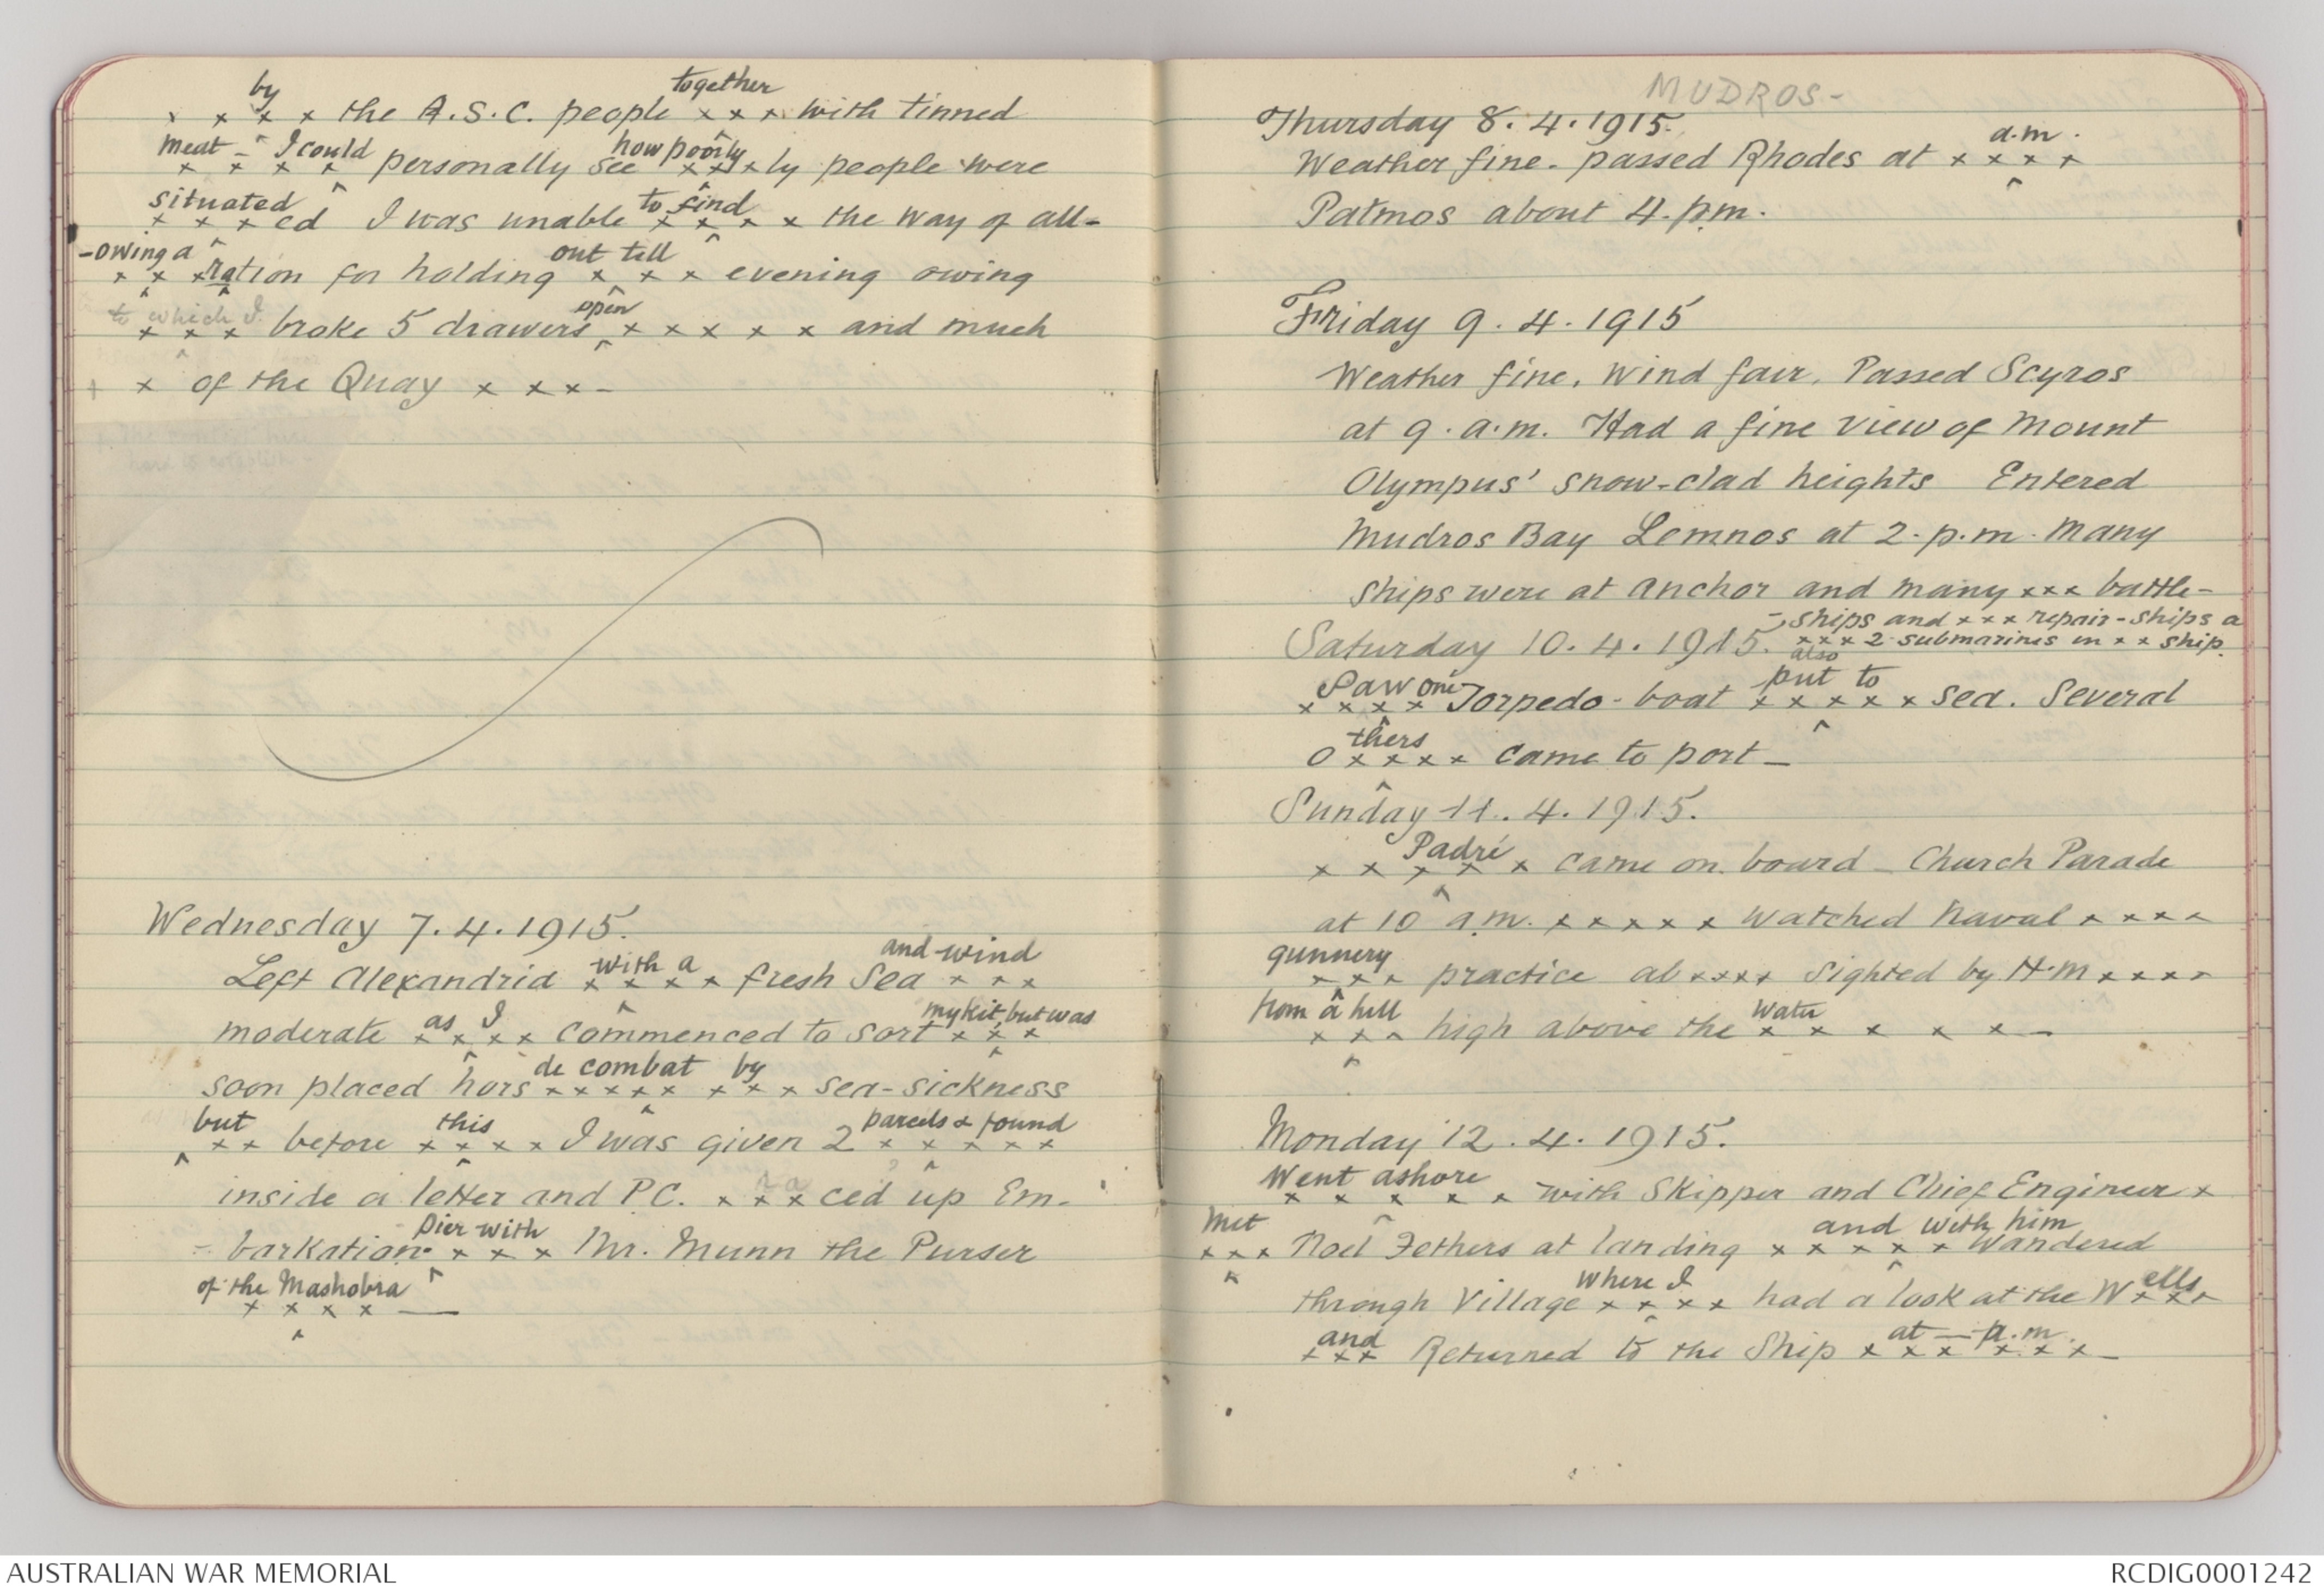 by together
x x x x the A.S.C. people x x x with tinned
meat - I could how poorly
x x x x personally see x x x ly people were
situated to find
x x x ed I was unable x x x x the way of all-
-owing a out till
x x x ration for holding x x x evening owing
to which I open
x x x broke 5 drawers x x x x x and much
x x of the Quay x x x -
Wednesday 7.4.1915.
with a and wind
Left Alexandria x x x x fresh Sea x x x
as I my kit, but was
moderate x x x x commenced to sort x x x
de combat by
soon placed hors x x x x x x x x sea-sickness
but this parcels & found
x x before x x x x I was given 2 x x x x x
inside a letter and P.C. x x x ced up Em-
pier with
- barkation x x x Mr. Munn the Purser
of the Mashobra
x x x x —
MUDROS -
Thursday 8.4.1915.
a.m.
Weather fine - passed Rhodes at x x x x
Patmos about 4.p.m.
Friday 9.4.1915
Weather fine, Wind fair, Passed Scyros
at 9.a.m. Had a fine view of Mount
Olympus' snow-clad heights Entered
Mudros Bay Lemnos at 2.p.m. Many
Ships were at anchor and many x x x battle-
- ships and x x x repair-ships a
Saturday 10.4.1915. x x x 2 submarines in x x ship.
also
Saw one put to
x x x x Torpedo-boat x x x x x sea. Several
thers
O x x x x came to port -
Sunday 11.4.1915.
Padré
x x x x x came on board - Church Parade
at 10 a.m. x x x x x watched Naval x x x x
gunnery
x x x practice ab x x x x sighted by H.M x x x x
from a hill water
x x x high above the x x x x x -
Monday 12.4.1915.
Went ashore
x x x x x with Skipper and Chief Engineer x
Met and with him
x x x Noel Fethers at landing x x x x x wandered
where I ells
through Village x x x x had a look at the W x x x
and at — p.m.
x x x Returned to the Ship x x x x x x -
AUSTRALIAN WAR MEMORIAL
RCDIG0001242